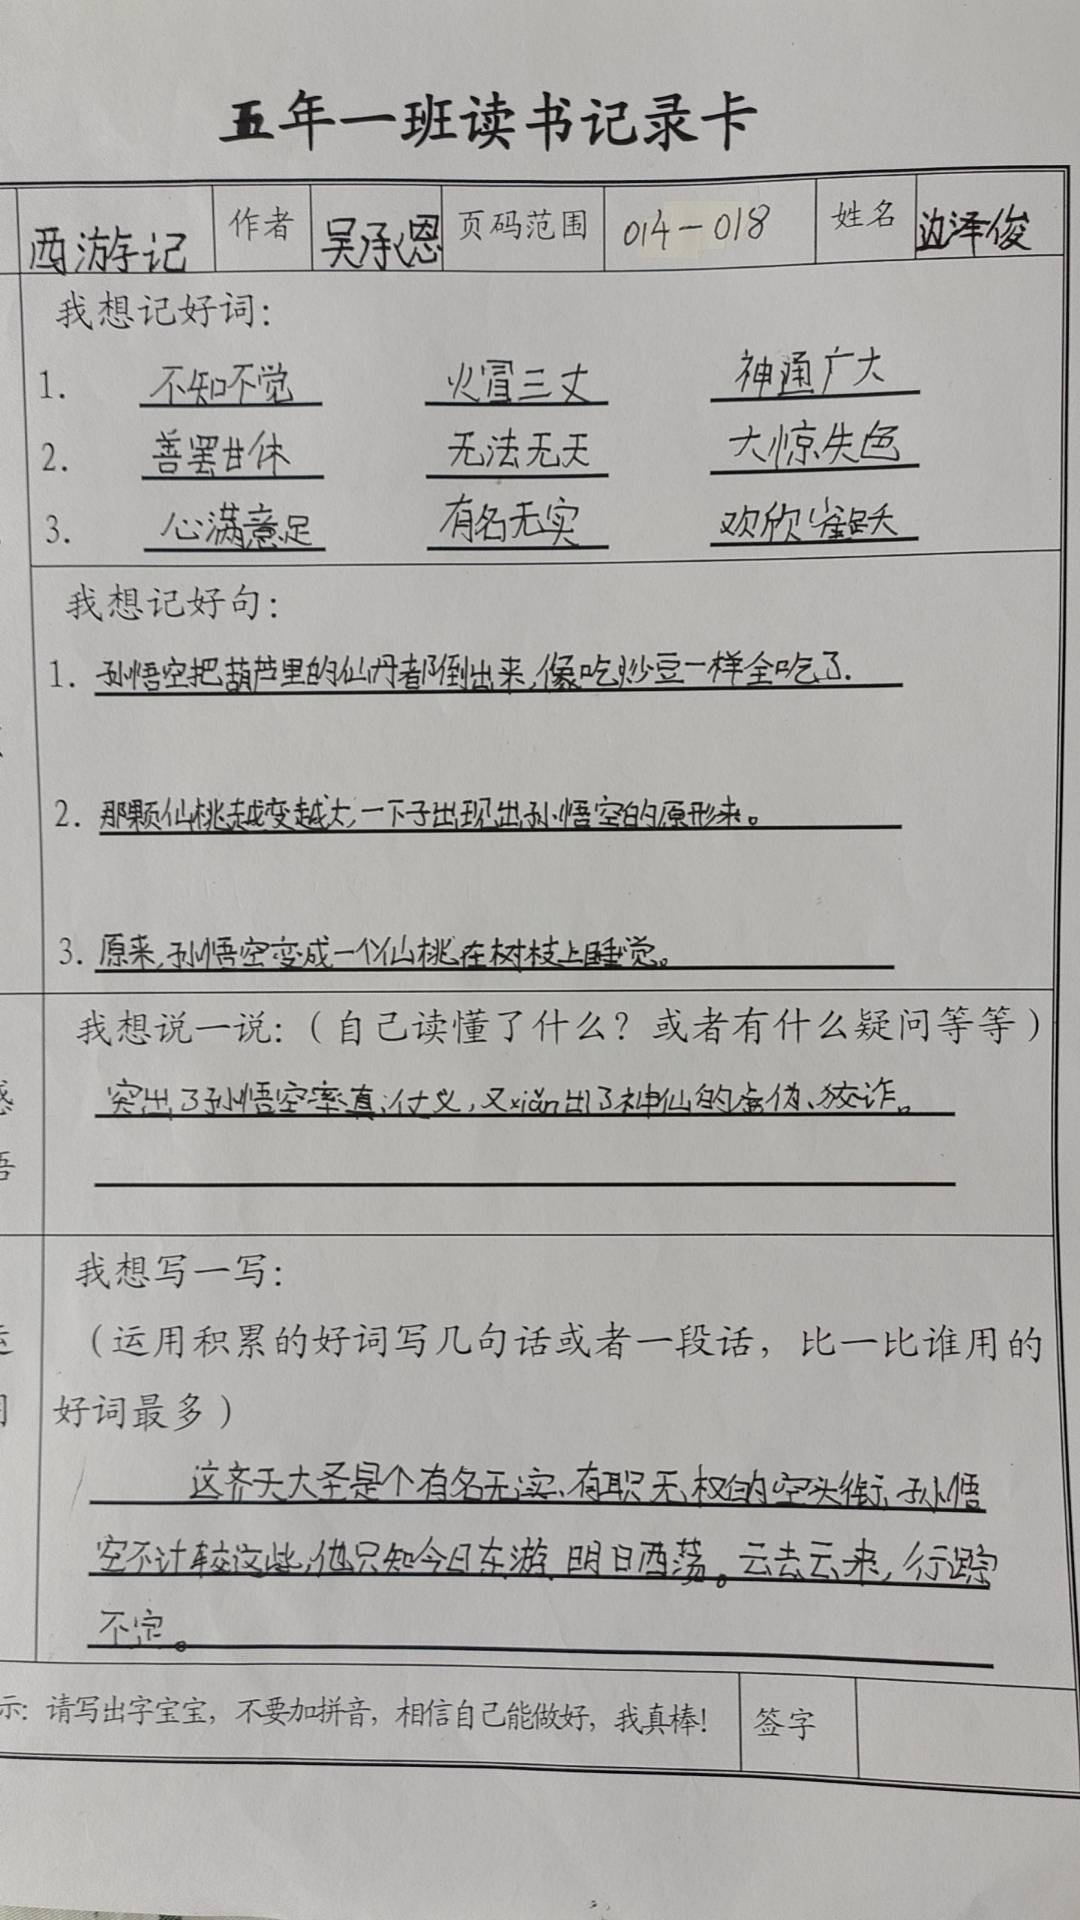 五年一班读书记录卡
西游记 作者 吴承恩 页码范围 014-018 姓名 边泽俊
我想记好词:
1. 不知不觉 火冒三丈 神通广大
2. 善罢甘休 无法无天 大惊失色
3. 心满意足 有名无实 欢欣雀跃
我想记好句:
1. 孙悟空把葫芦里的仙丹都倒出来,像吃炒豆一样全吃了.
2. 那颗仙桃越变越大,一下子出现出孙悟空的原形来。
3. 原来,孙悟空变成一个仙桃在树枝上睡觉。
我想说一说:(自己读懂了什么?或者有什么疑问等等)
感 突出了孙悟空率真、仗义,又xiǎn出了神仙的虚伪、狡诈。
悟
我想写一写:
运 (运用积累的好词写几句话或者一段话,比一比谁用的
用 好词最多)
这齐天大圣是个有名无实、有职无权的空头衔,孙悟
空不计较这些,他只知今日东游,明日西荡。云去云来,行踪
不定。
示:请写出字宝宝,不要加拼音,相信自己能做好,我真棒! 签字